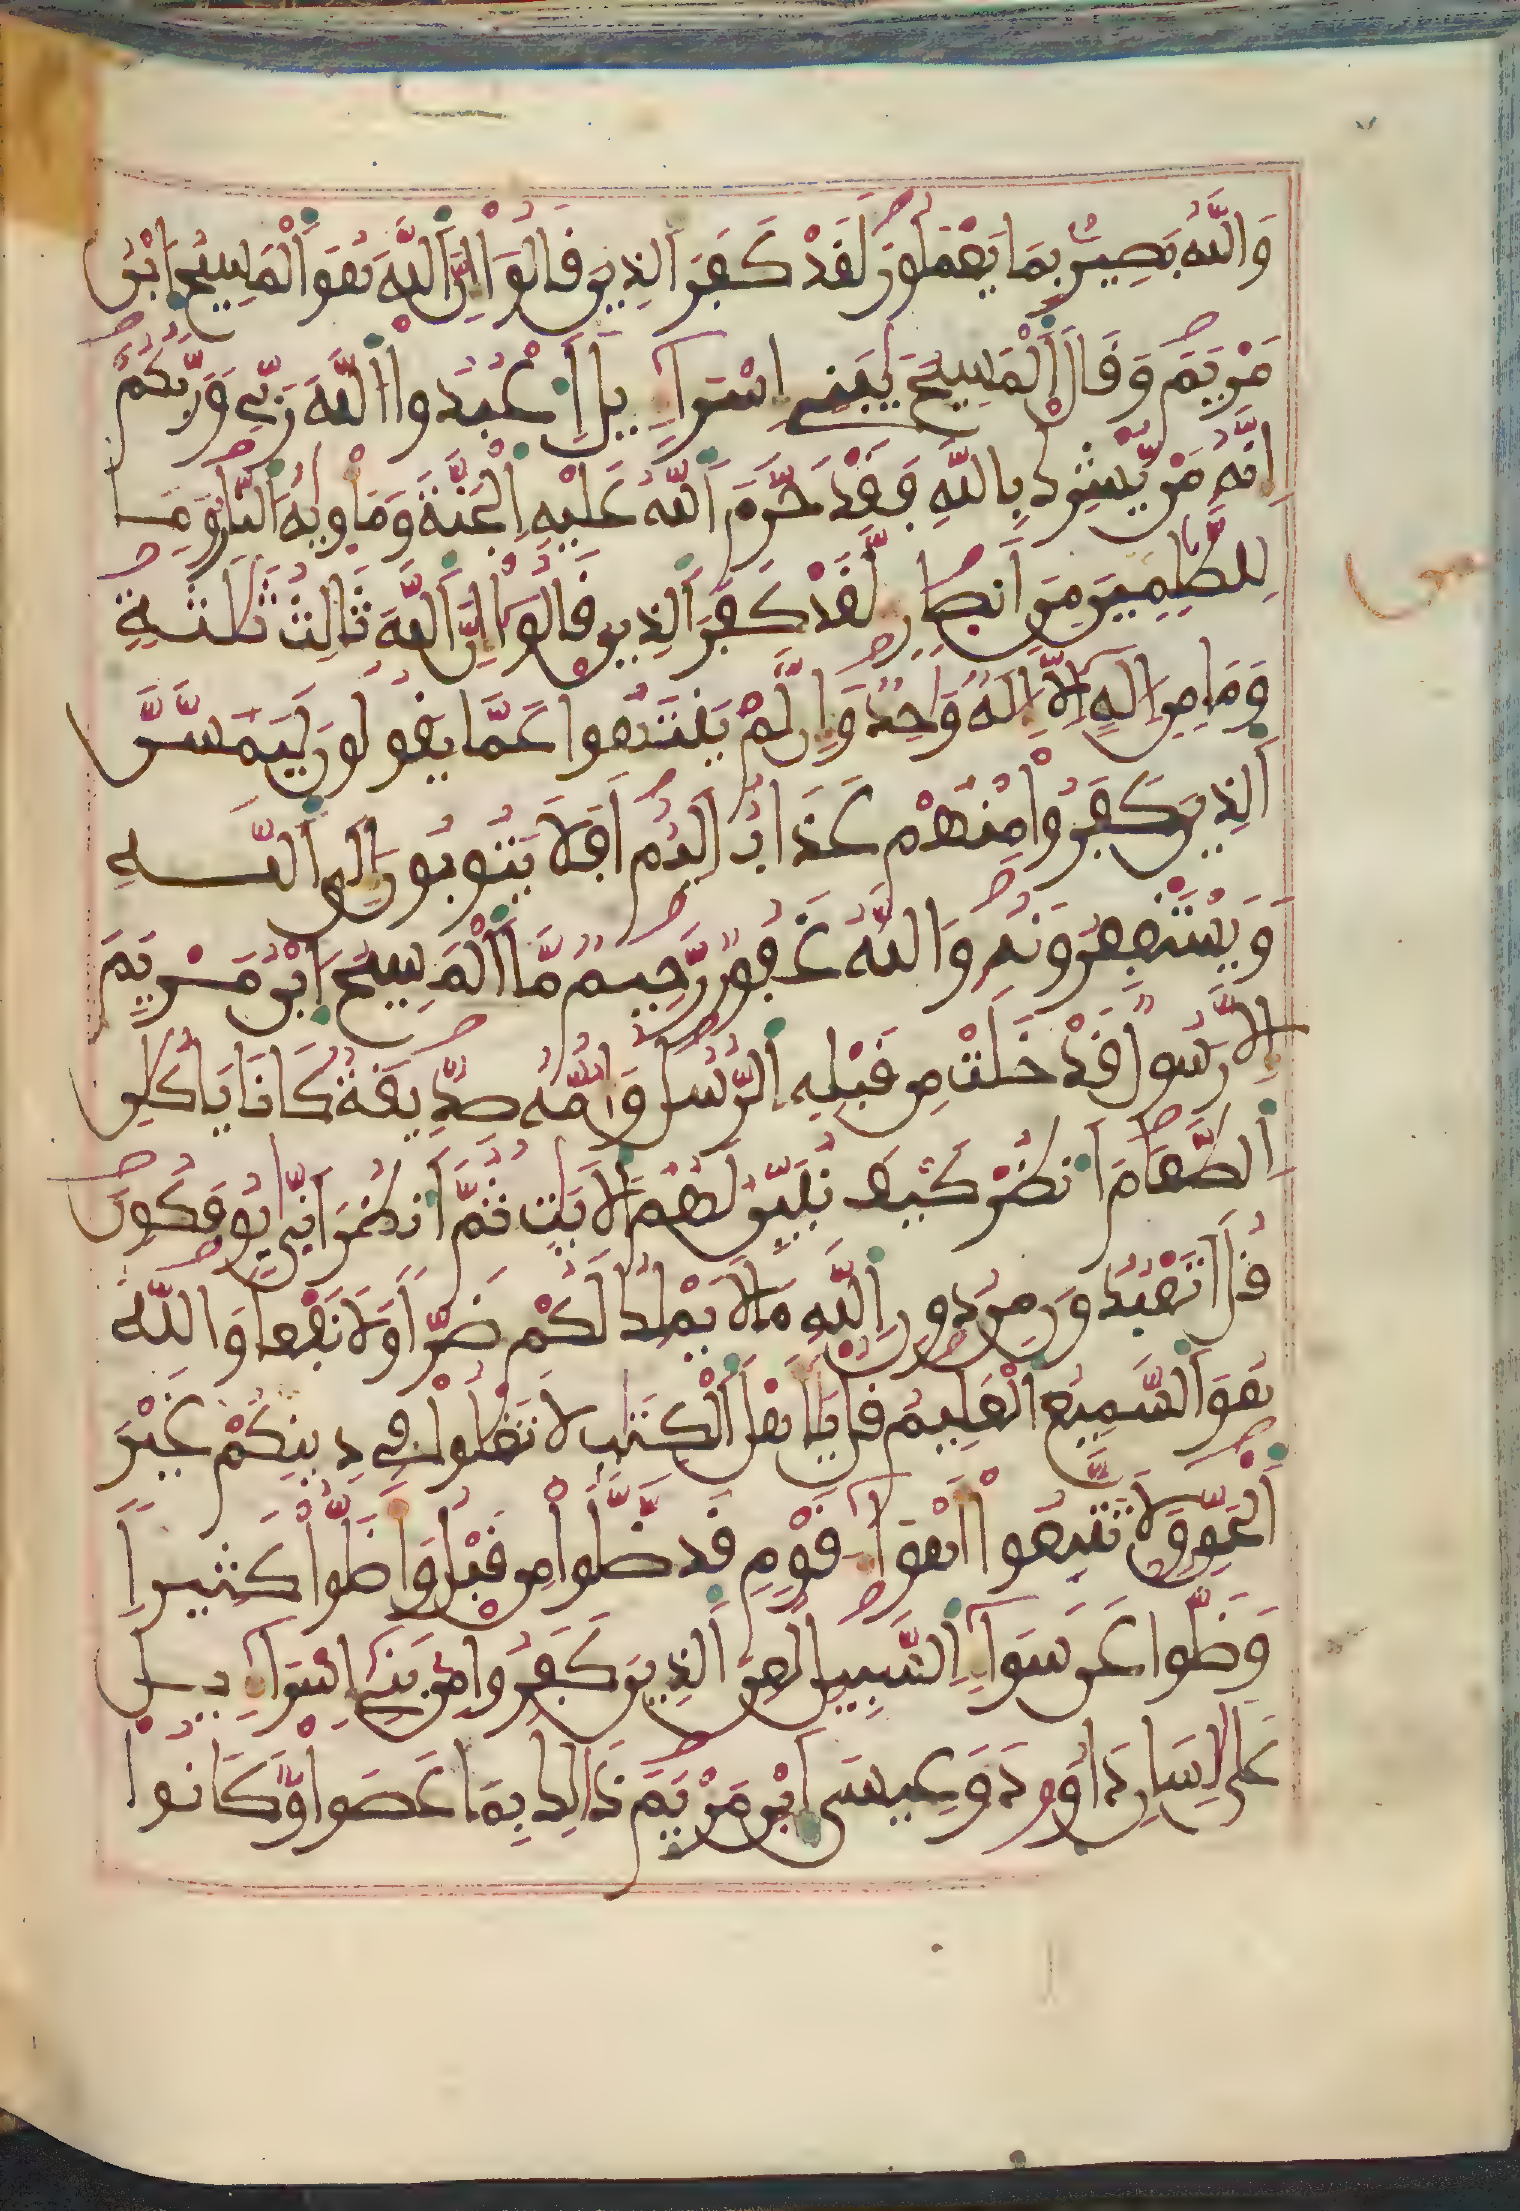 وَاللَّهُ بَصِيرٌ بِمَا يَعْمَلُونَ لَقَدْ كَفَرَ الذِينَ قَالُوا إِنَّ اللَّهَ هُوَ الْمَسِيحُ ابْنُ
مَرْيَمَ وَقَالَ الْمَسِيحُ يَبَنِي إِسْرَاءِيلَ اعْبُدُوا اللَّهَ رَبِّي وَرَبَّكُمْ
إِنَّهُ مَنْ يُّشْرِكْ بِاللَّهِ فَقَدْ حَرَّمَ اللَّهُ عَلَيْهِ الْجَنَّةَ وَمَأْوِيهُ النَّارُ وَمَا
لِلظَّلِمِينَ مِنَ انصَارٍ لَّقَدْ كَفَرَ الذِينَ قَالُوا إِنَّ اللَّهَ ثَالِثُ ثَلَثَةٍ
وَمَا مِنِ الَهٍ إِلَّا إِلَهٌ وَاحِدٌ وَإِن لَّمْ يَنتَهُوا عَمَّا يَقُولُونَ لَيَمَسَّنَّ
الذِينَ كَفَرُوا مِنْهُمْ عَذَابٌ الِيمٌ افَلَا يَتُوبُونَ إِلَى اللَّهِ
وَيَسْتَغْفِرُونَهُ وَاللَّهُ غَفُورٌ رَّحِيمٌ مَّا الْمَسِيحُ ابْنُ مَرْيَمَ
إِلَّا رَسُولٌ قَدْ خَلَتْ مِن قَبْلِهِ الرُّسُلُ وَأُمُّهُ صِدِّيقَةٌ كَانَا يَاكُلَنِ
الطَّعَامَ انظُرْ كَيْفَ نُبَيِّنُ لَهُمُ الْآيَتِ ثُمَّ انظُرَ انَّى يُوفَكُونَ
قُلَ اتَعْبُدُونَ مِن دُونِ اللَّهِ مَا لَا يَمْلِكُ لَكُمْ ضَرًّا وَلَا نَفْعًا وَاللَّهُ
هُوَ السَّمِيعُ الْعَلِيمُ قُلْ يَا أَهْلَ الْكِتَبِ لَا تَغْلُوا فِي دِينِكُمْ غَيْرَ
الْحَقِّ وَلَا تَتَّبِعُوا أَهْوَاءَ قَوْمٍ قَد ضَّلُّوا مِن قَبْلُ وَأَضَلُّوا كَثِيراً
وَضَلُّوا عَن سَوَاءِ السَّبِيلِ لُعِنَ الذِينَ كَفَرُوا مِن بَنِي إِسْرَاءِيلَ
عَلَى لِسَانِ دَاوُودَ وَعِيسَى ابْنِ مَرْيَمَ ذَالِكَ بِمَا عَصَوا وَّكَانُوا